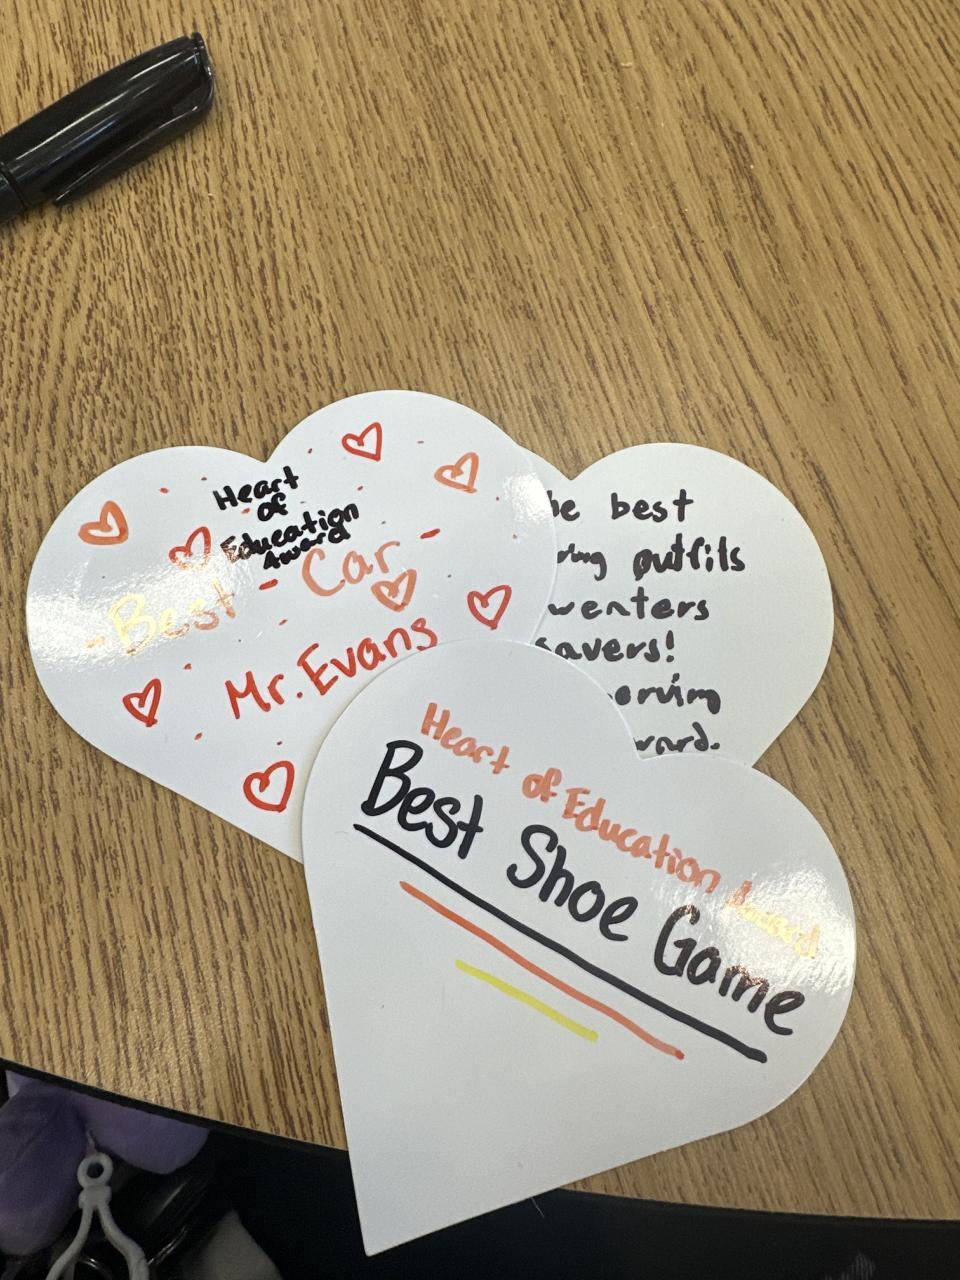 Heart
of
Education
Award
-Best - Car -
Mr. Evans
best
outfits
wenters
savers!
Heart of Education Award
Best Shoe Game